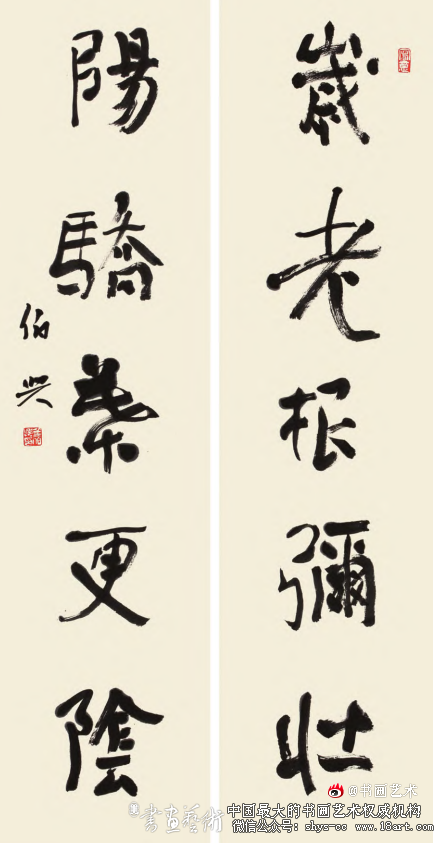 歲老根彌壯
陽驕葉更陰
伯興
@书画艺术
書画藝術
中国最大的书画艺术权威机构
微信公众号：shys-cc www.18art.com